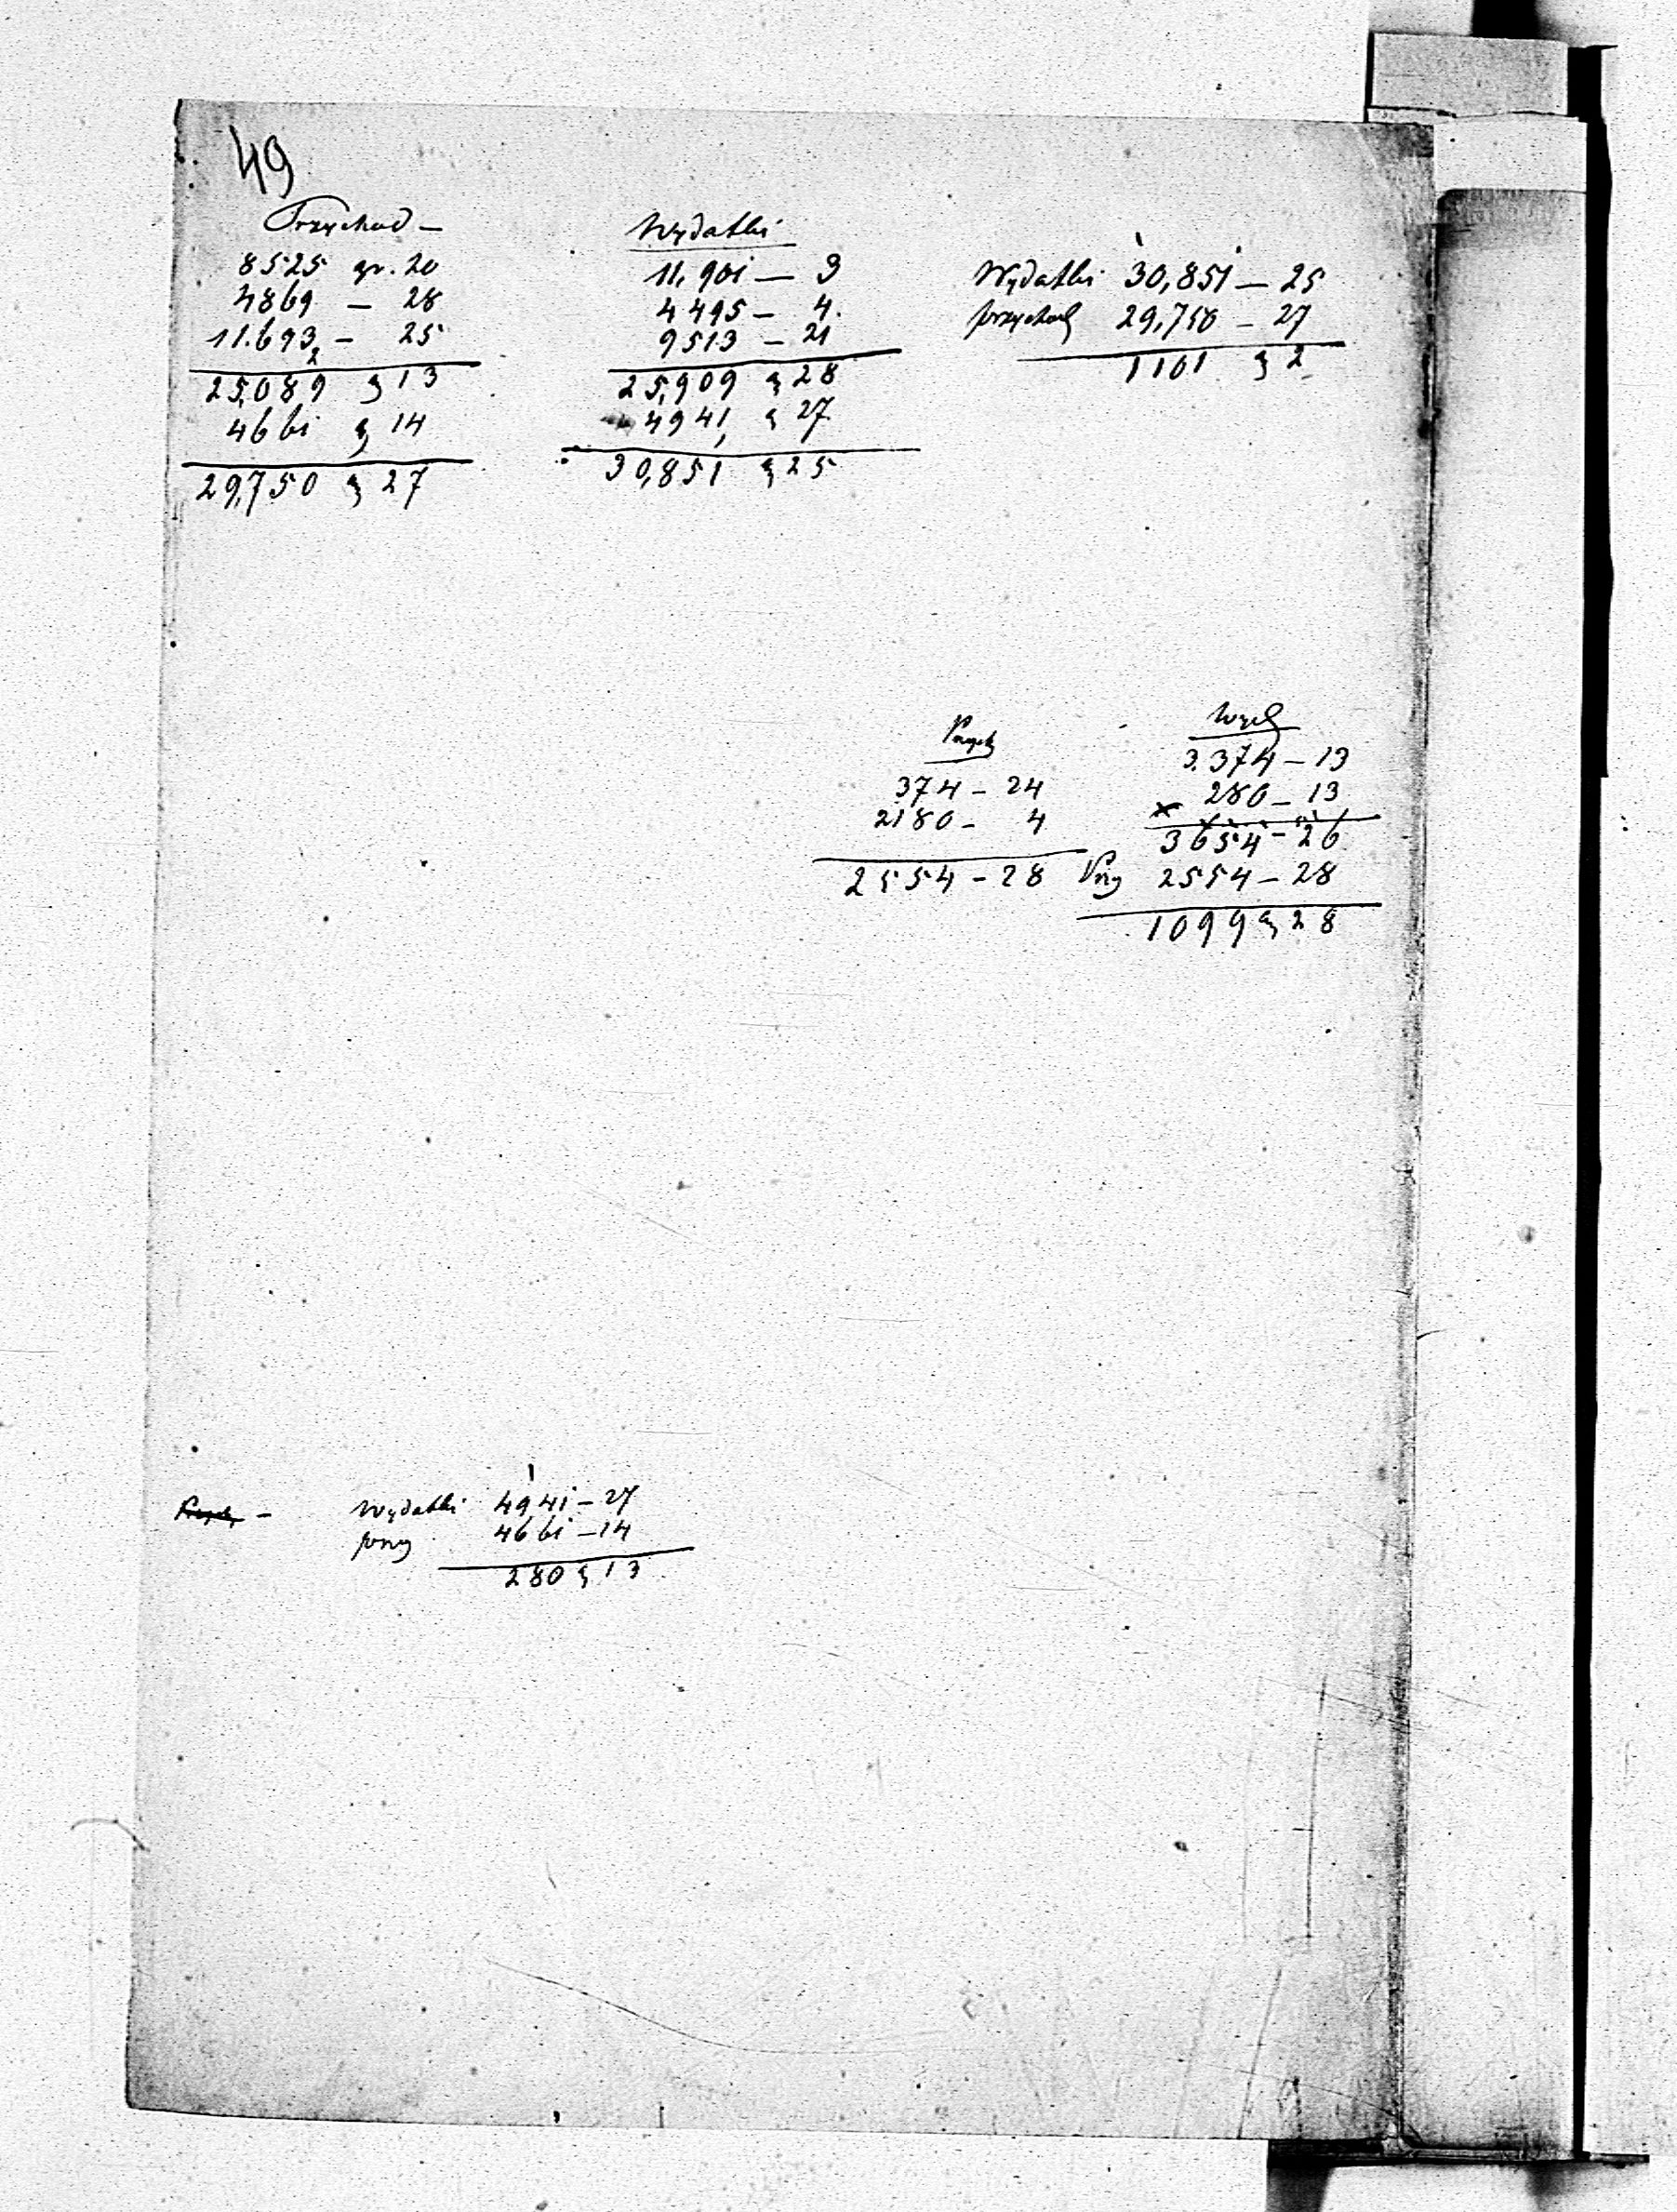 49
Przychod —
8525 gr. 20
4869 — 28
11.693 — 25
2
25,089 g 13
4661 g 14
29,750 g 27
Wydatki
11,901 — 3
4495 — 4.
9513 — 21
25,909 g 28
4941, g 27
30,851 g 25
Wydatki 30,851 — 25
przychod 29,750 — 27
1101 g 2
Przych
374 — 24
2180 — 4
2554 — 28
Wyd
3.374 — 13
280 — 13
x
3654 — 26
Przy 2554 — 28
1099 g 28
Przych —
Wydatki 4941 — 27
przy 4661 — 14
280 g 13